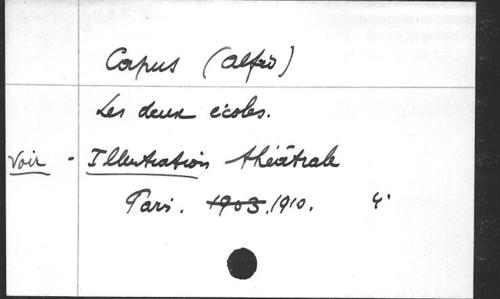 Capus (Alfred)
Les deux écoles.
Voir - Illustration théâtrale
Paris. 1903. 1910. 4°